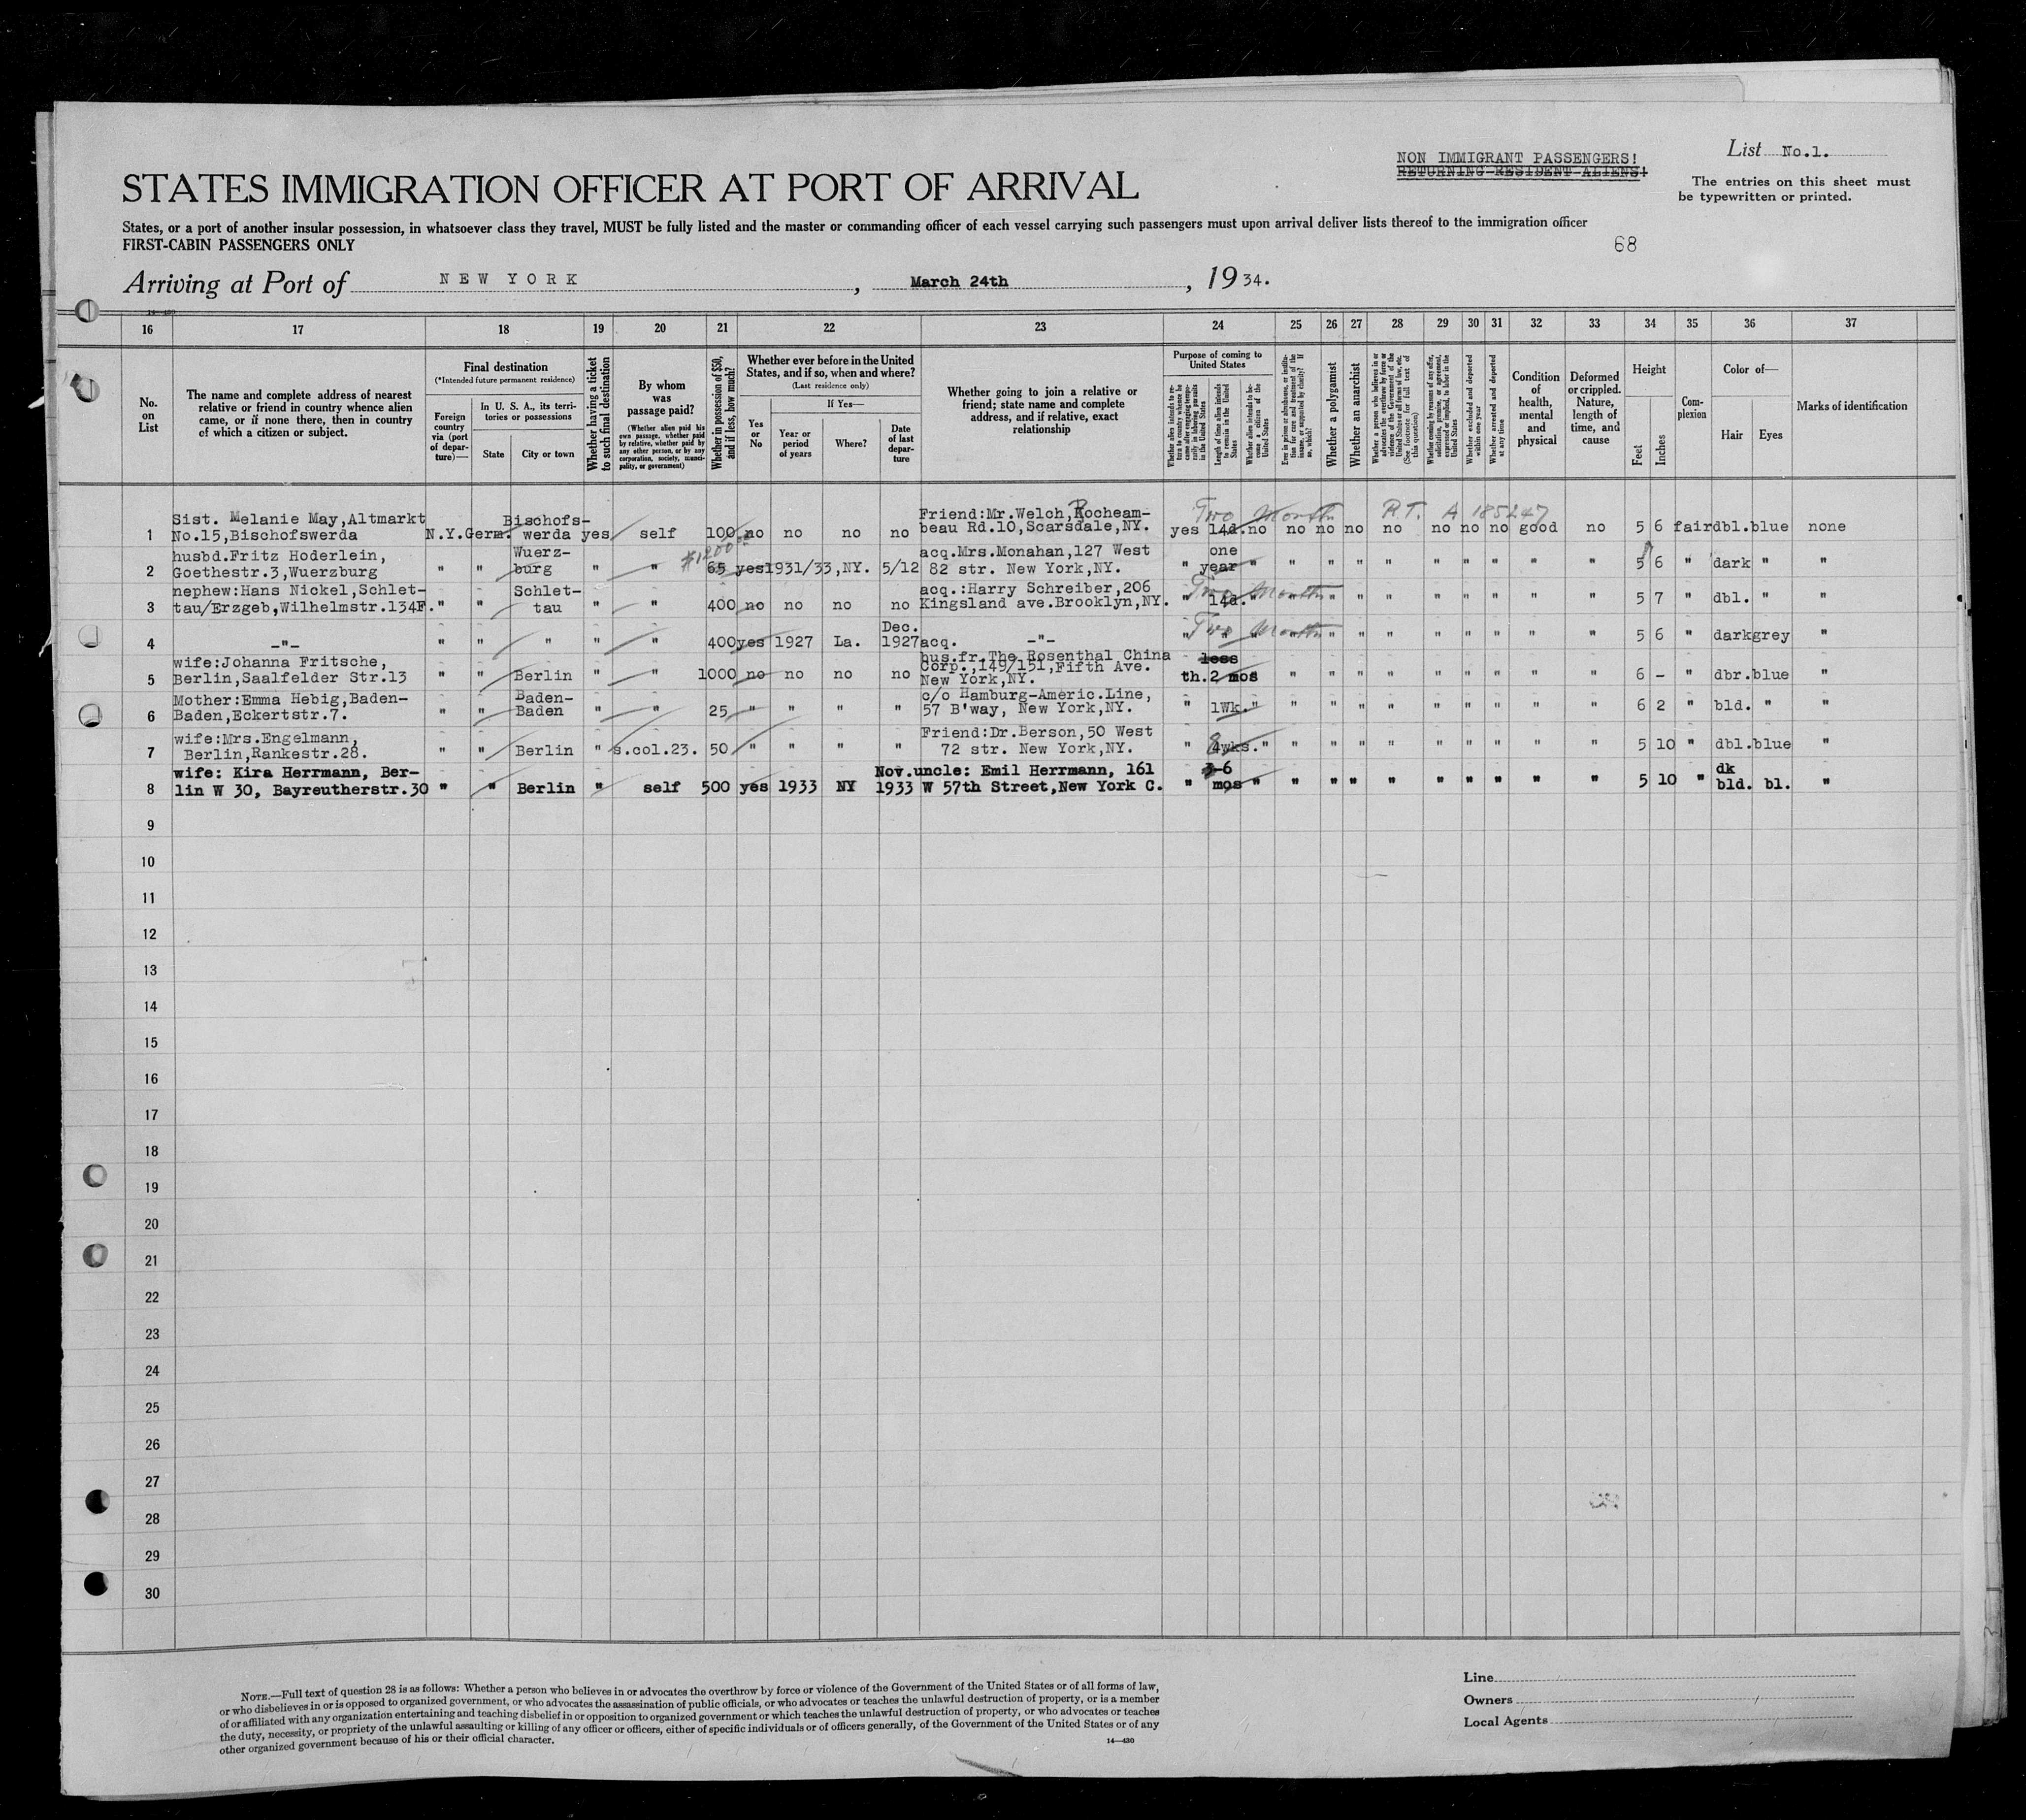 NON IMMIGRANT PASSENGERS!
RETURNING RESIDENT ALIENS!
List No.1.
STATES IMMIGRATION OFFICER AT PORT OF ARRIVAL
The entries on this sheet must
be typewritten or printed.
States, or a port of another insular possession, in whatsoever class they travel, MUST be fully listed and the master or commanding officer of each vessel carrying such passengers must upon arrival deliver lists thereof to the immigration officer
FIRST-CABIN PASSENGERS ONLY
68
Arriving at Port of NEW YORK, March 24th, 1934.
14-430
16 17 18 19 20 21 22 23 24 25 26 27 28 29 30 31 32 33 34 35 36 37
No.
on
List
The name and complete address of nearest
relative or friend in country whence alien
came, or if none there, then in country
of which a citizen or subject.
Final destination
(*Intended future permanent residence)
Foreign
country
via (port
of depar-
ture)—
In U. S. A., its terri-
tories or possessions
State
City or town
Whether having a ticket
to such final destination
By whom
was
passage paid?
(Whether alien paid his
own passage, whether paid
by relative, whether paid by
any other person, or by any
corporation, society, munici-
pality, or government)
Whether in possession of $50,
and if less, how much?
Whether ever before in the United
States, and if so, when and where?
(Last residence only)
If Yes—
Yes
or
No
Year or
period
of years
Where?
Date
of last
depar-
ture
Whether going to join a relative or
friend; state name and complete
address, and if relative, exact
relationship
Purpose of coming to
United States
Whether alien intends to re-
turn to country whence he
came after engaging tempo-
rarily in laboring pursuits
in the United States
Length of time alien intends
to remain in the United
States
Whether alien intends to be-
come a citizen of the
United States
Ever in prison or almshouse, or institu-
tion for care and treatment of the
insane, or supported by charity? If
so, which?
Whether a polygamist
Whether an anarchist
Whether a person who believes in or
advocates the overthrow by force or
violence of the Government of the
United States or all forms of law, etc.
(See footnote for full text of
this question)
Whether coming by reason of any offer,
solicitation, promise, or agreement,
expressed or implied, to labor in the
United States
Whether excluded and deported
within one year
Whether arrested and deported
at any time
Condition
of
health,
mental
and
physical
Deformed
or crippled.
Nature,
length of
time, and
cause
Height
Feet
Inches
Com-
plexion
Color of—
Hair
Eyes
Marks of identification
Sist. Melanie May,Altmarkt Bischofs- Friend:Mr.Welch,Rocheam- Two Months R.T. A 185247
1 No.15,Bischofswerda N.Y. Germ. werda yes self 100 no no no no beau Rd.10,Scarsdale,NY. yes 14d. no no no no no no no no good no 5 6 fair dbl. blue none
husbd.Fritz Hoderlein, Wuerz- $1200 acq.Mrs.Monahan,127 West one
2 Goethestr.3,Wuerzburg " " burg " " 65 yes 1931/33,NY. 5/12 82 str. New York,NY. " year " " " " " " " " " " 5 6 " dark " "
nephew:Hans Nickel,Schlet- Schlet- acq.:Harry Schreiber,206 Two Months
3 tau/Erzgeb,Wilhelmstr.134F. " " tau " " 400 no no no no Kingsland ave.Brooklyn,NY. " 14d. " " " " " " " " " " 5 7 " dbl. " "
Dec. Two Months
4 -"- " " " " " 400 yes 1927 La. 1927 acq. -"- " " " " " " " " " " " " 5 6 " dark grey "
wife:Johanna Fritsche, bus.fr.The Rosenthal China less
Corp.,149/151,Fifth Ave.
5 Berlin,Saalfelder Str.13 " " Berlin " " 1000 no no no no New York,NY. th. 2 mos " " " " " " " " " 6 - " dbr. blue "
Mother:Emma Hebig,Baden- Baden- c/o Hamburg-Americ.Line,
6 Baden,Eckertstr.7. " " Baden " " 25 " " " " 57 B'way, New York,NY. " 1Wk. " " " " " " " " " " 6 2 " bld. " "
wife:Mrs.Engelmann, Friend:Dr.Berson,50 West 8
7 Berlin,Rankestr.28. " " Berlin " s.col.23. 50 " " " " 72 str. New York,NY. " 4wks. " " " " " " " " " " 5 10 " dbl. blue "
wife: Kira Herrmann, Ber- Nov. uncle: Emil Herrmann, 161 3-6 dk
8 lin W 30, Bayreutherstr.30 " " Berlin " self 500 yes 1933 NY 1933 W 57th Street,New York C. " mos " " " " " " " " " " 5 10 " bld. bl. "
9
10
11
12
13
14
15
16
17
18
19
20
21
22
23
24
25
26
27
28
29
30
NOTE.—Full text of question 28 is as follows: Whether a person who believes in or advocates the overthrow by force or violence of the Government of the United States or of all forms of law,
or who disbelieves in or is opposed to organized government, or who advocates the assassination of public officials, or who advocates or teaches the unlawful destruction of property, or is a member
of or affiliated with any organization entertaining and teaching disbelief in or opposition to organized government or which teaches the unlawful destruction of property, or who advocates or teaches
the duty, necessity, or propriety of the unlawful assaulting or killing of any officer or officers, either of specific individuals or of officers generally, of the Government of the United States or of any
other organized government because of his or their official character.
14—430
Line
Owners
Local Agents